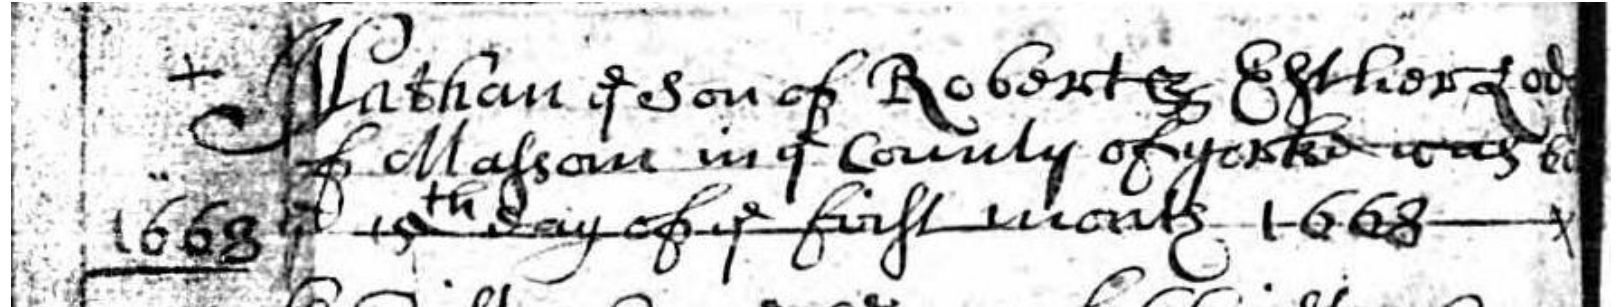 + Nathan ye Son of Robert & Esther Lod
of Massom in ye County of yorke was bo
1668 ye 15th day of ye first month 1668